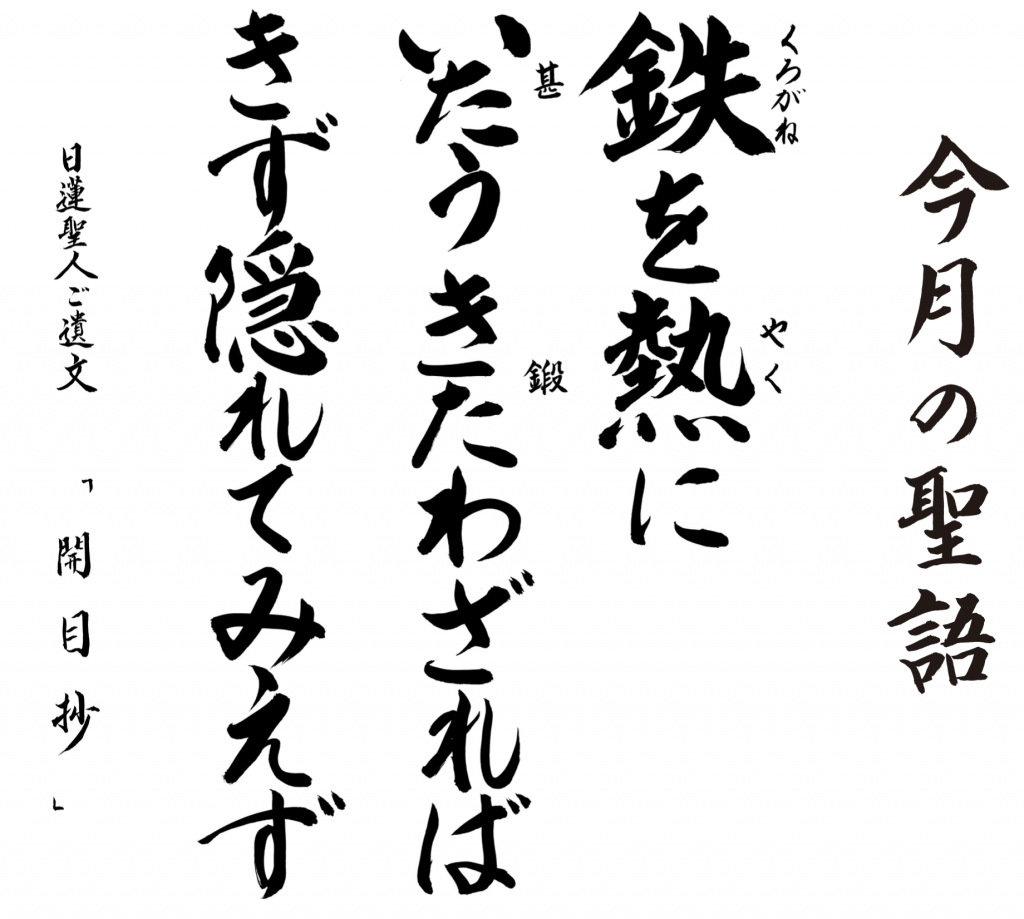 今月の聖語
くろがね
やく
鉄を熱に
甚
鍛
いたうきたわざれば
きず隠れてみえず
日蓮聖人ご遺文 「開目抄」